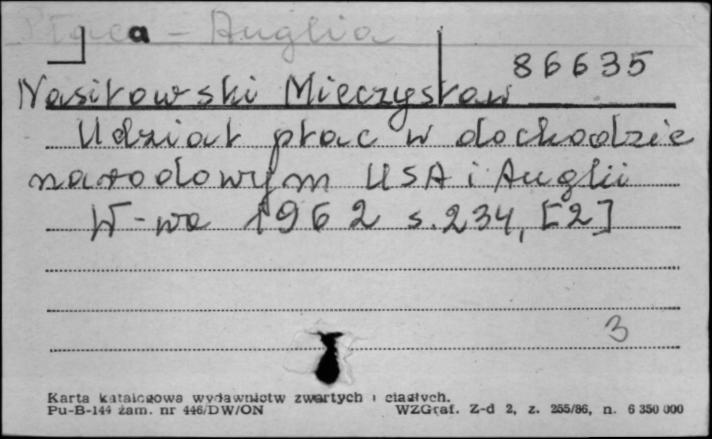 Płaca - Anglia
86635
Nasiłowski Mieczysław
Udział płac w dochodzie
narodowym USA i Anglii
W-wa 1962 s. 234, [2]
3
Karta katalogowa wydawnictw zwartych i ciągłych.
Pu-B-144 zam. nr 446/DW/ON WZGraf. Z-d 2, z. 255/86, n. 6 350 000